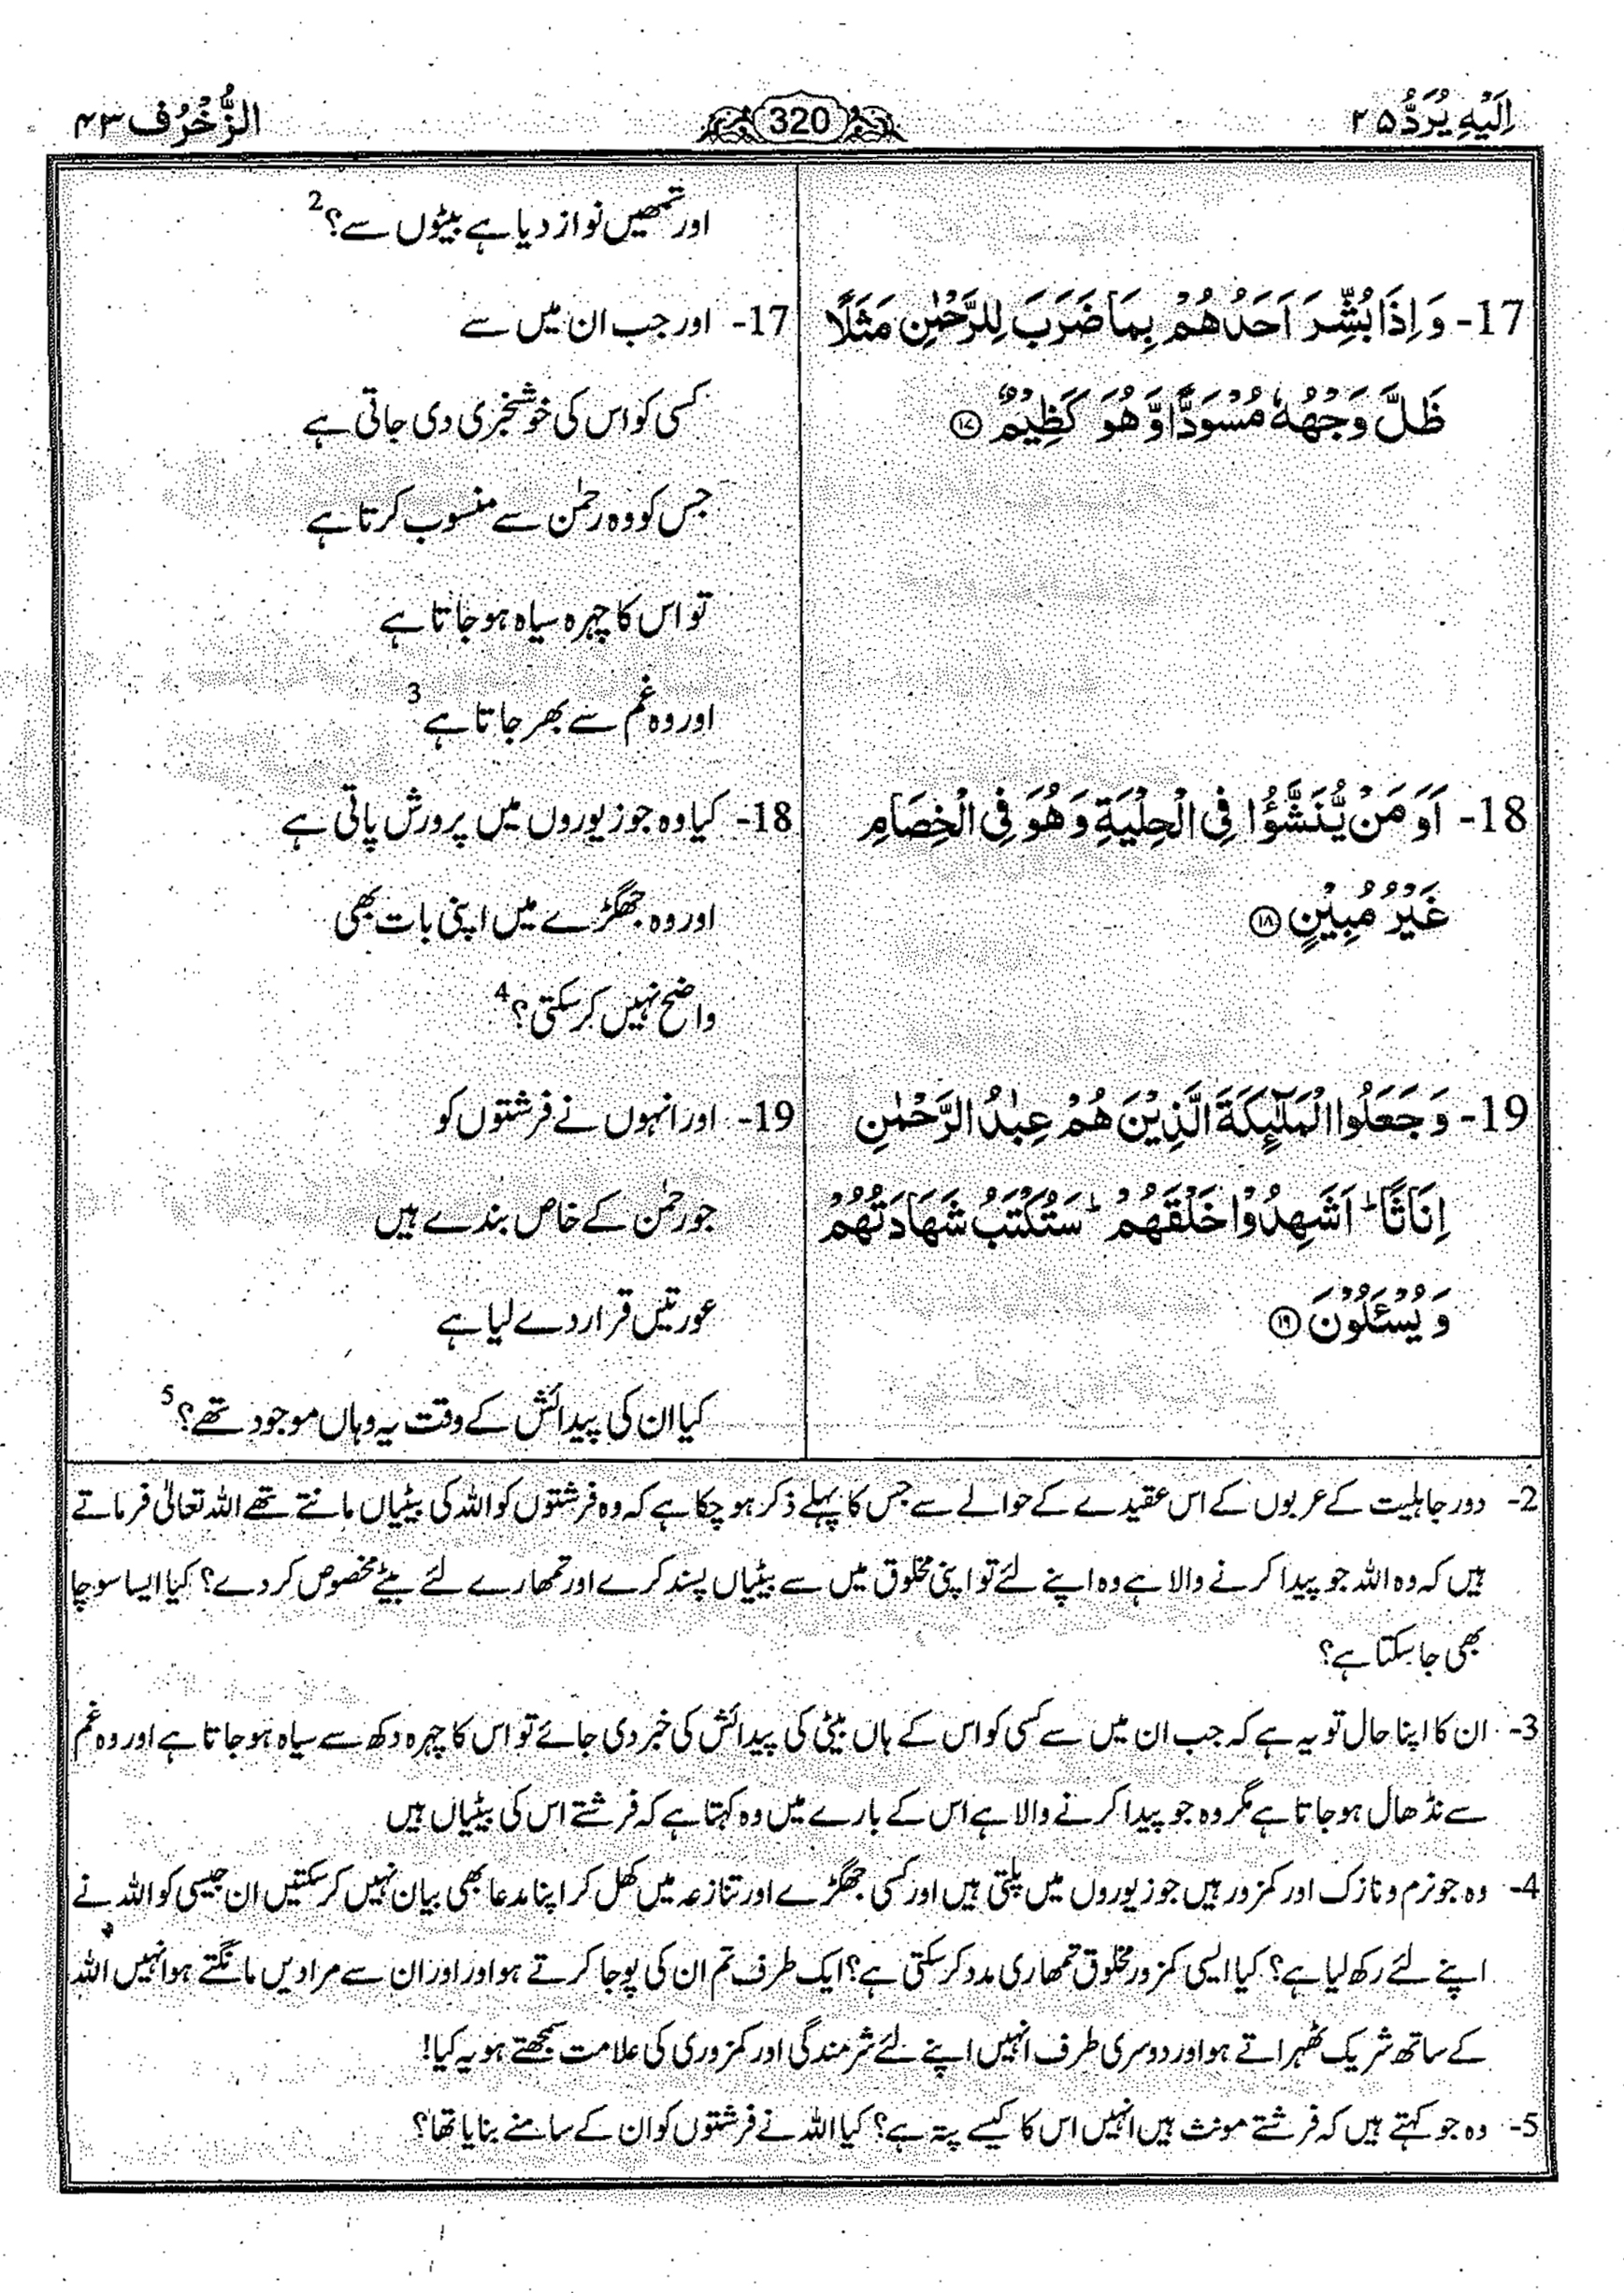 اِلَيْهِ يُرَدُّ ۲۵
320
الزُّخْرُف ۴۳
17- وَ اِذَا بُشِّرَ اَحَدُهُمْ بِمَا ضَرَبَ لِلرَّحْمٰنِ مَثَلًا
ظَلَّ وَجْهُهٗ مُسْوَدًّا وَّ هُوَ كَظِيْمٌ ۝۱۷
18- اَوَ مَنْ يُّنَشَّؤُا فِى الْحِلْيَةِ وَ هُوَ فِى الْخِصَامِ
غَيْرُ مُبِيْنٍ ۝۱۸
19- وَ جَعَلُوا الْمَلٰٓئِكَةَ الَّذِيْنَ هُمْ عِبٰدُ الرَّحْمٰنِ
اِنَاثًا ؕ اَشَهِدُوْا خَلْقَهُمْ ؕ سَتُكْتَبُ شَهَادَتُهُمْ
وَ يُسْـَٔلُوْنَ ۝۱۹
اور تمھیں نواز دیا ہے بیٹوں سے؟ 2
17- اور جب ان میں سے
کسی کو اس کی خوشخبری دی جاتی ہے
جس کو وہ رحمٰن سے منسوب کرتا ہے
تو اس کا چہرہ سیاہ ہو جاتا ہے
اور وہ غم سے بھر جاتا ہے 3
18- کیا وہ جو زیوروں میں پرورش پاتی ہے
اور وہ جھگڑے میں اپنی بات بھی
واضح نہیں کر سکتی؟ 4
19- اور انہوں نے فرشتوں کو
جو رحمٰن کے خاص بندے ہیں
عورتیں قرار دے لیا ہے
کیا ان کی پیدائش کے وقت یہ وہاں موجود تھے؟ 5
2- دور جاہلیت کے عربوں کے اس عقیدے کے حوالے سے جس کا پہلے ذکر ہو چکا ہے کہ وہ فرشتوں کو اللہ کی بیٹیاں مانتے تھے اللہ تعالیٰ فرماتے
ہیں کہ وہ اللہ جو پیدا کرنے والا ہے وہ اپنے لئے تو اپنی مخلوق میں سے بیٹیاں پسند کرے اور تمھارے لئے بیٹے مخصوص کر دے؟ کیا ایسا سوچا
بھی جا سکتا ہے؟
3- ان کا اپنا حال تو یہ ہے کہ جب ان میں سے کسی کو اس کے ہاں بیٹی کی پیدائش کی خبر دی جائے تو اس کا چہرہ دکھ سے سیاہ ہو جاتا ہے اور وہ غم
سے نڈھال ہو جاتا ہے مگر وہ جو پیدا کرنے والا ہے اس کے بارے میں وہ کہتا ہے کہ فرشتے اس کی بیٹیاں ہیں
4- وہ جو نرم و نازک اور کمزور ہیں جو زیوروں میں پلتی ہیں اور کسی جھگڑے اور تنازعہ میں کھل کر اپنا مدعا بھی بیان نہیں کر سکتیں ان جیسی کو اللہ نے
اپنے لئے رکھ لیا ہے؟ کیا ایسی کمزور مخلوق تمھاری مدد کر سکتی ہے؟ ایک طرف تم ان کی پوجا کرتے ہو اور اور ان سے مرادیں مانگتے ہو انہیں اللہ
کے ساتھ شریک ٹھہراتے ہو اور دوسری طرف انہیں اپنے لئے شرمندگی اور کمزوری کی علامت سمجھتے ہو یہ کیا!
5- وہ جو کہتے ہیں کہ فرشتے مونث ہیں انہیں اس کا کیسے پتہ ہے؟ کیا اللہ نے فرشتوں کو ان کے سامنے بنایا تھا؟